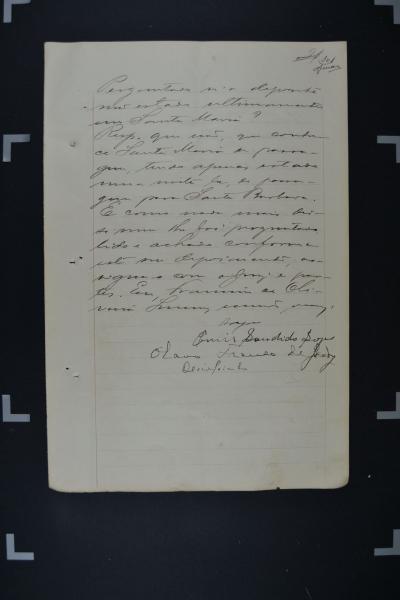 Perguntado si o depoente
não esteve ultimamente
em Santa Maria?
Resp. que não, que conhe-
ce Santa Maria de passa-
gem, tendo apenas estado
uma noite lá, de passa-
gem para Santa Barbara.
E como nada mais dis-
se nem lhe foi perguntado
lido e achado conforme
este seu depoimento, as-
signa o com o Juiz e par-
tes. Eu, Francisco de Oli-
veira
Candido Lopes
Olavo